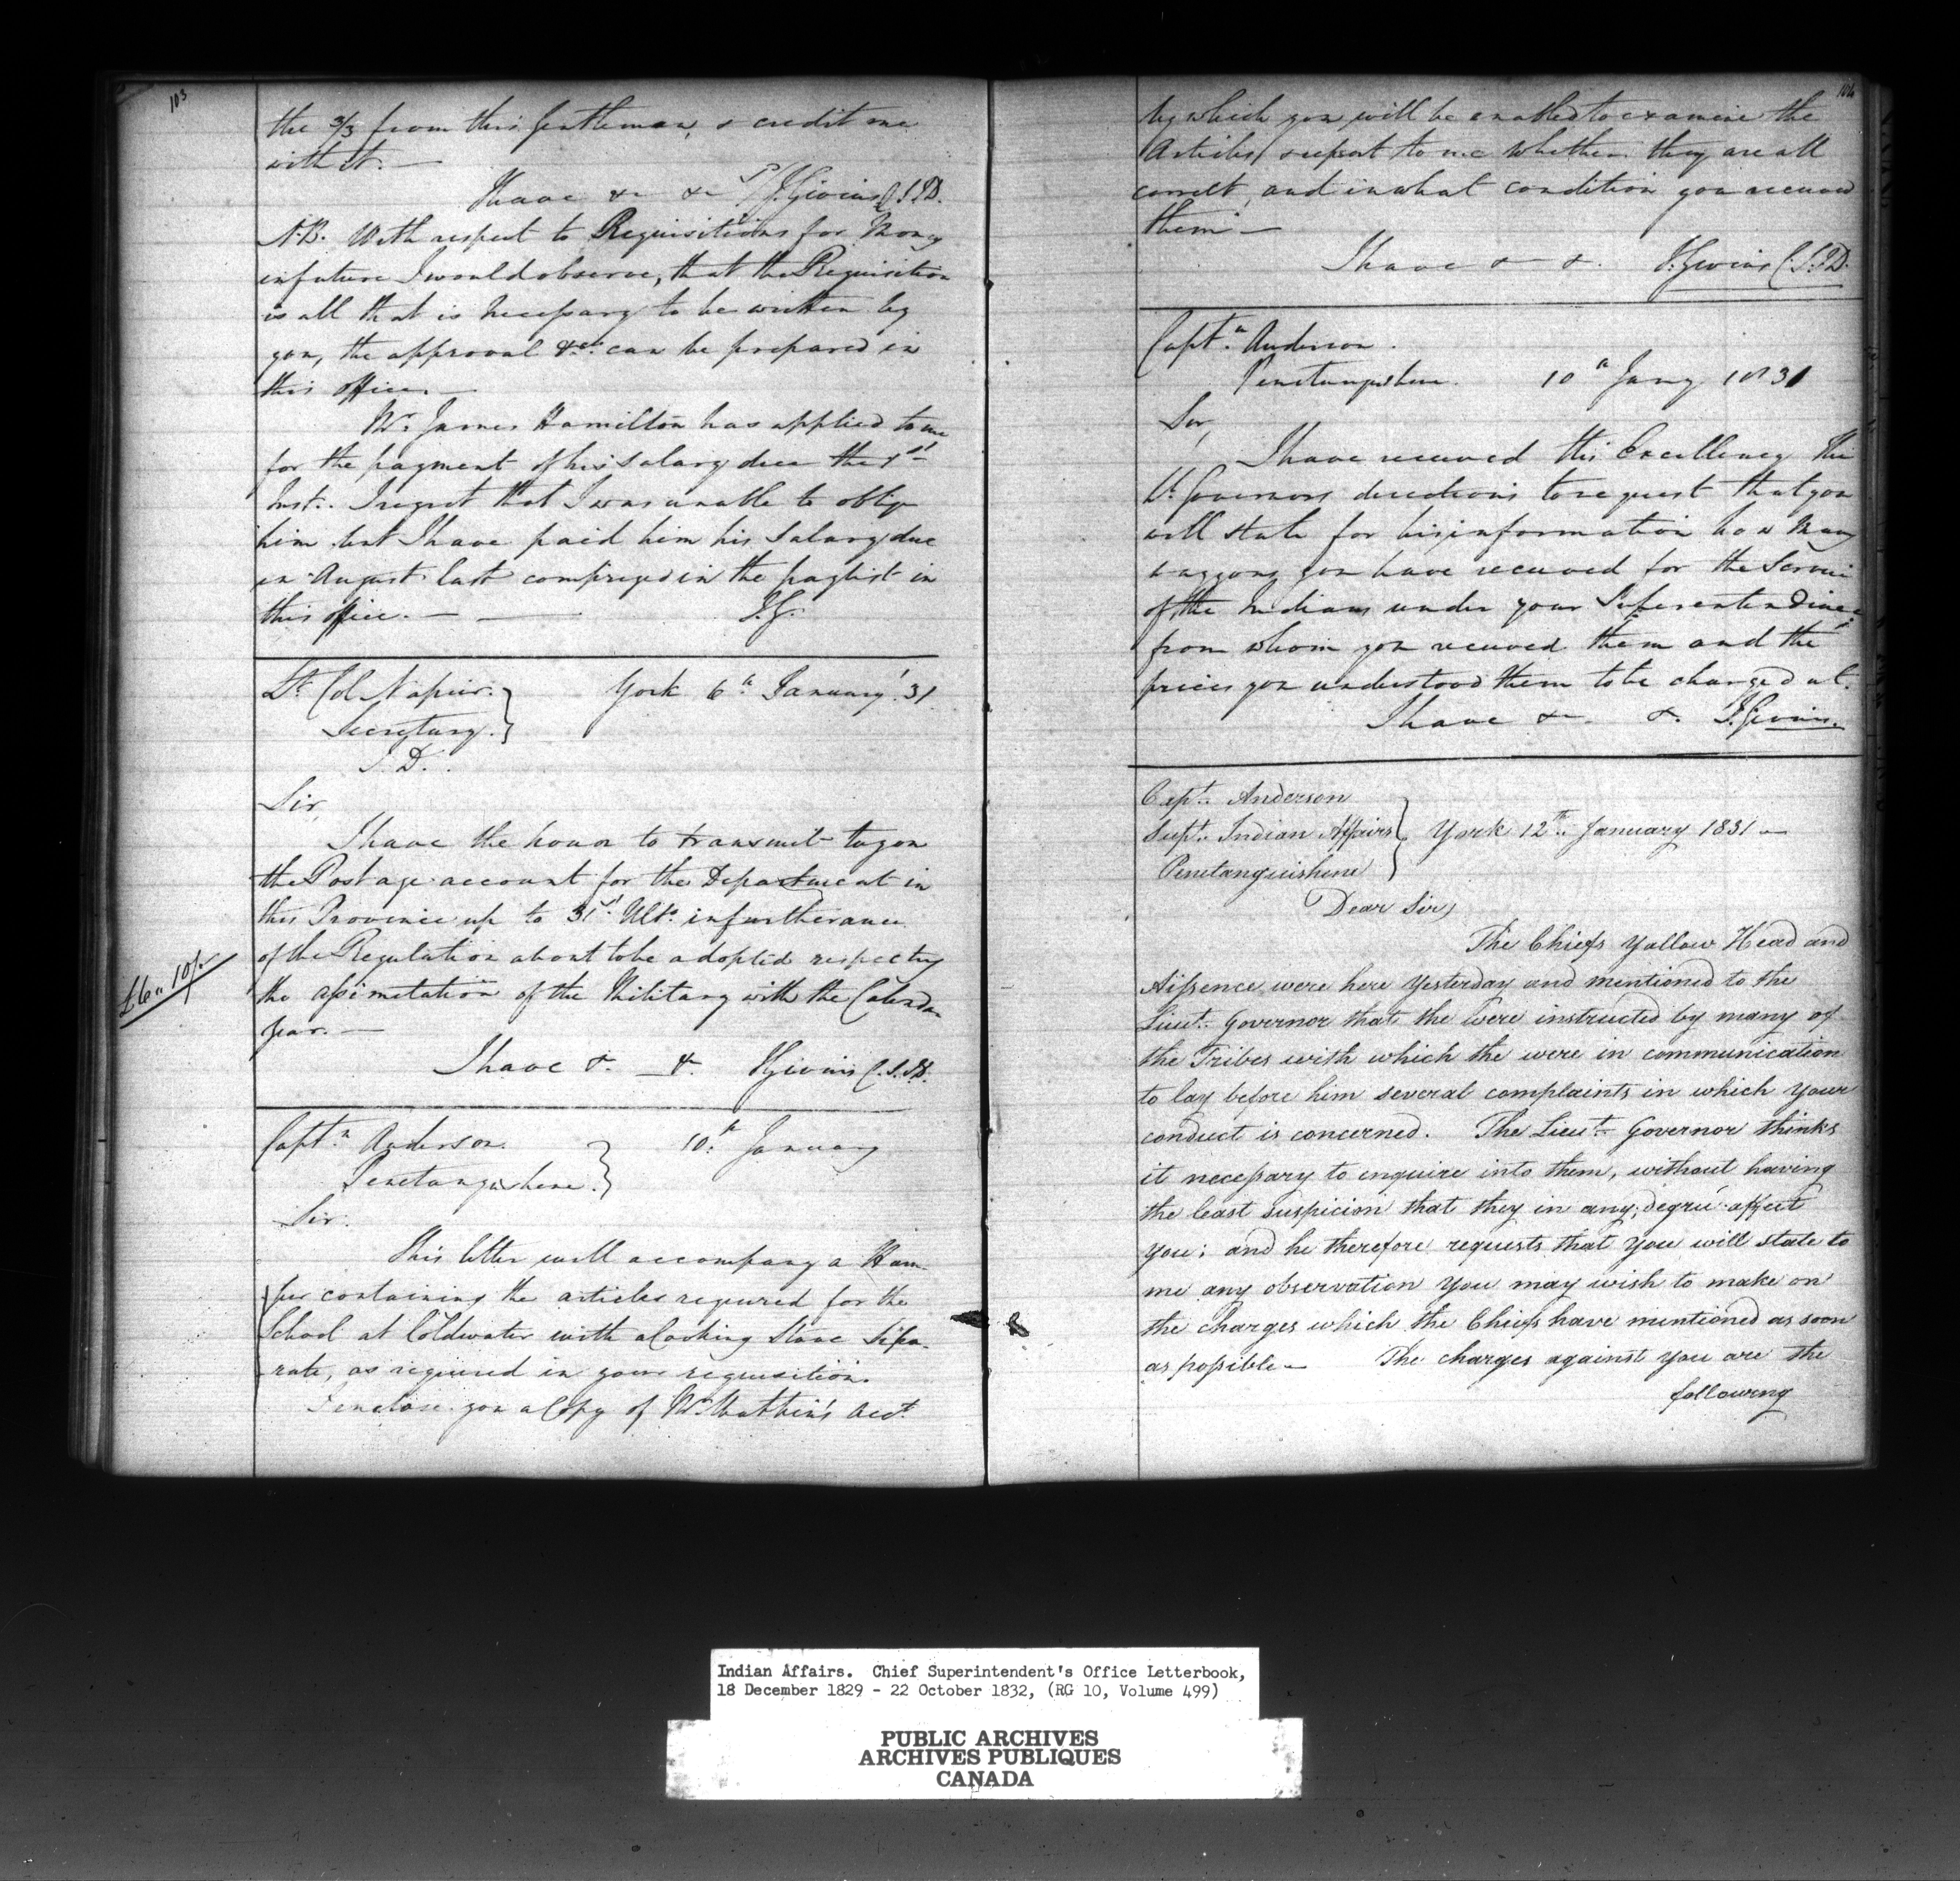 103
the 3/3 from this Gentleman, & credit me
with it. —
I have &c &c J. Givins C.S.I.D.
N.B. With respect to Requisitions for Money
in future I would observe, that the Requisition
is all that is necessary to be written by
you, the approval &c. can be prepared in
this office. —
Mr. James Hamilton has applied to me
for the payment of his Salary due the 1st
Inst. I regret that I was unable to oblige
him but I have paid him his Salary due
in August last comprized in the paylist in
this office. — — J.G.
Lt. Col Napier. York 6th January '31.
Secretary.
I.D.
Sir,
I have the honor to transmit to you
the Postage account for the Department in
this Province up to 31st Ulto. in furtherance
of the Regulation about to be adopted respecting
£6 " 10/.
the assimetation of the Military with the Calendar
year. —
I have &. — &. J Givins C.S.I.D.
Captn. Anderson. 10th January
Penetanguishene.
Sir.
This letter will accompany a Ham-
per containing the articles required for the
School at Coldwater with a Cooking Stove Sepa-
rate, as required in your requisition.
I enclose you a Copy of Mr. Acct.
104
by which you will be enabled to examine the
Articles, & report to me whether they are all
correct, and in what condition you received
them —
I have & &. J. Givins C.S.I.D.
Captn. Anderson.
Penetanguishene. 10th Jany 1831
Sir,
I have received His Excellency The
Lt. Governors directions to request that you
will state for his information how Many
waggons you have received for the Service
of the Indians under your Superintendence
from whom you received them and the
prices you understood them to be charged at.
I have &c. &. J. Givins.
Capt. Anderson
Supt. Indian Affairs York 12th. January 1831 —
Penetanguishene
Dear Sir,
The Chiefs Yallow Head and
Aissence were here Yesterday and mentioned to the
Lieut. Governor that the were instructed by many of
the Tribes with which the were in communication
to lay before him several complaints in which your
conduct is concerned. The Lieut. Governor thinks
it necessary to enquire into them, without having
the least suspicion that they in any degree affect
You; and he therefore requests that you will state to
me any observation You may wish to make on
the Charges which the Chiefs have mentioned as soon
as possible — The charges against you are the
following
Indian Affairs. Chief Superintendent's Office Letterbook,
18 December 1829 - 22 October 1832, (RG 10, Volume 499)
PUBLIC ARCHIVES
ARCHIVES PUBLIQUES
CANADA